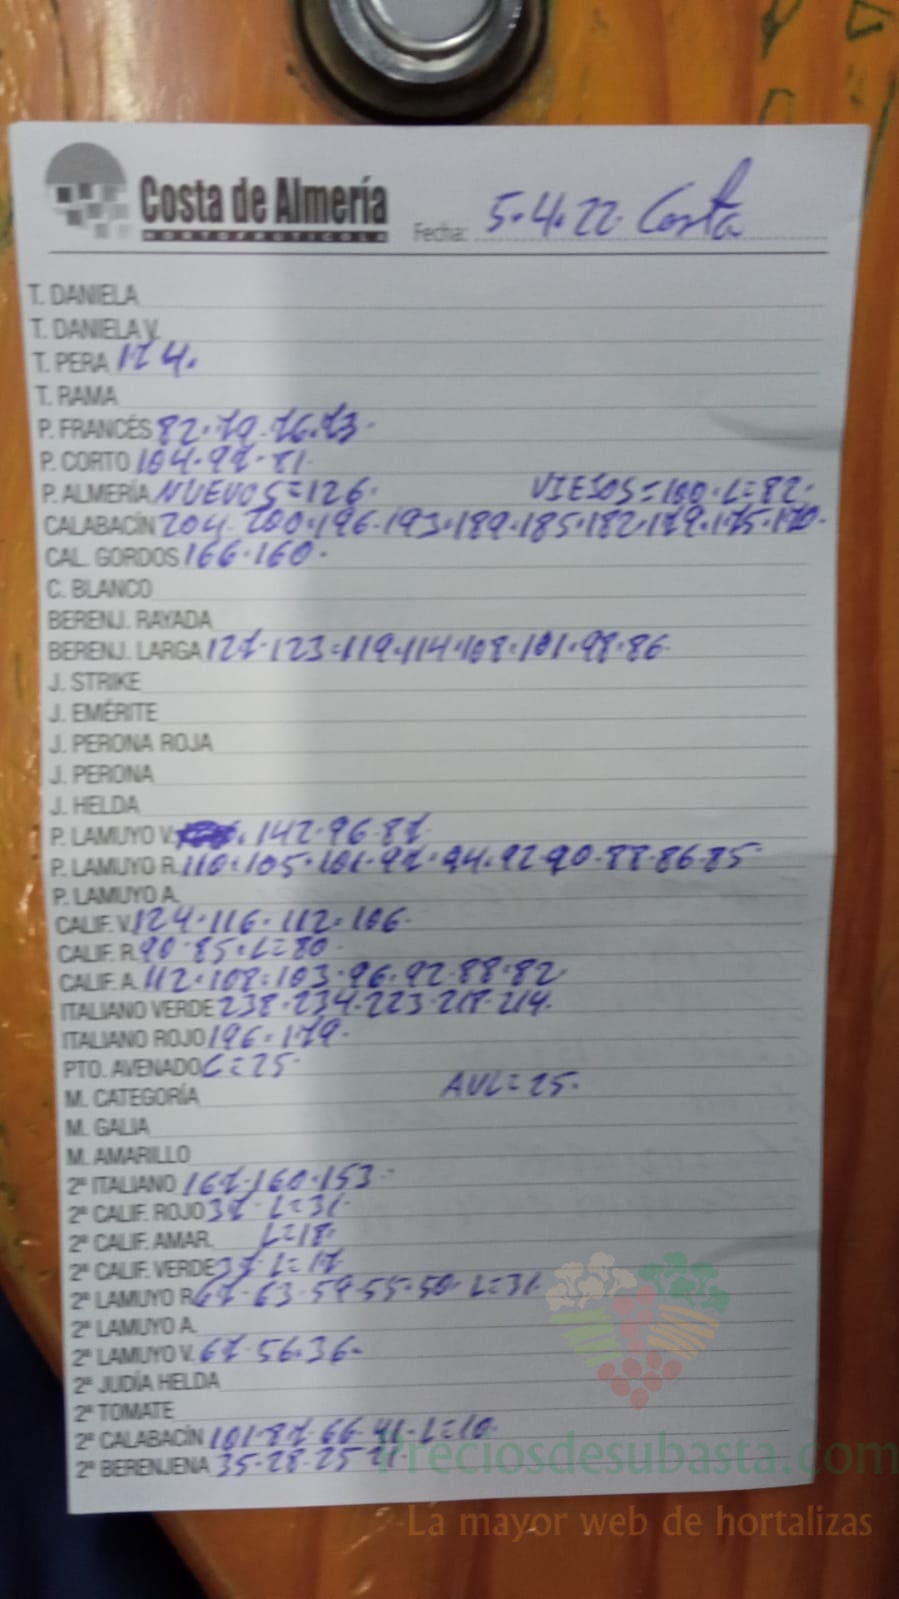 Costa de Almería
HORTOFRUTÍCOLA
Fecha: 5.4.22 Costa
T. DANIELA
T. DANIELA V.
T. PERA 174.
T. RAMA
P. FRANCÉS 82.79.76.73.
P. CORTO 104.97.81.
P. ALMERÍA NUEVOS=126. VIEJOS=100.L=82.
CALABACÍN 204.200.196.193.189.185.182.179.175.170.
CAL. GORDOS 166.160.
C. BLANCO
BERENJ. RAYADA
BERENJ. LARGA 127.123.119.114.108.101.98.86.
J. STRIKE
J. EMÉRITE
J. PERONA ROJA
J. PERONA
J. HELDA
P. LAMUYO V. 142.96.87.
P. LAMUYO R. 110.105.101.97.94.92.90.88.86.85
P. LAMUYO A.
CALIF. V. 124.116.112.106.
CALIF. R. 90.85.L=80.
CALIF. A. 112.108.103.96.92.88.82
ITALIANO VERDE 238.234.223.218.214.
ITALIANO ROJO 196.179.
PTO. AVENADO C=25.
M. CATEGORÍA AVL=25.
M. GALIA
M. AMARILLO
2ª ITALIANO 167.160.153.
2ª CALIF. ROJO 37. L=31.
2ª CALIF. AMAR. L=18.
2ª CALIF. VERDE 37 L=17
2ª LAMUYO R. 67.63.59.55.50. L=31.
2ª LAMUYO A.
2ª LAMUYO V. 67.56.36.
2ª JUDÍA HELDA
2ª TOMATE
2ª CALABACÍN 101.87.66.41.L=10.
2ª BERENJENA 35.28.25.21.
Preciosdesubasta.com
La mayor web de hortalizas